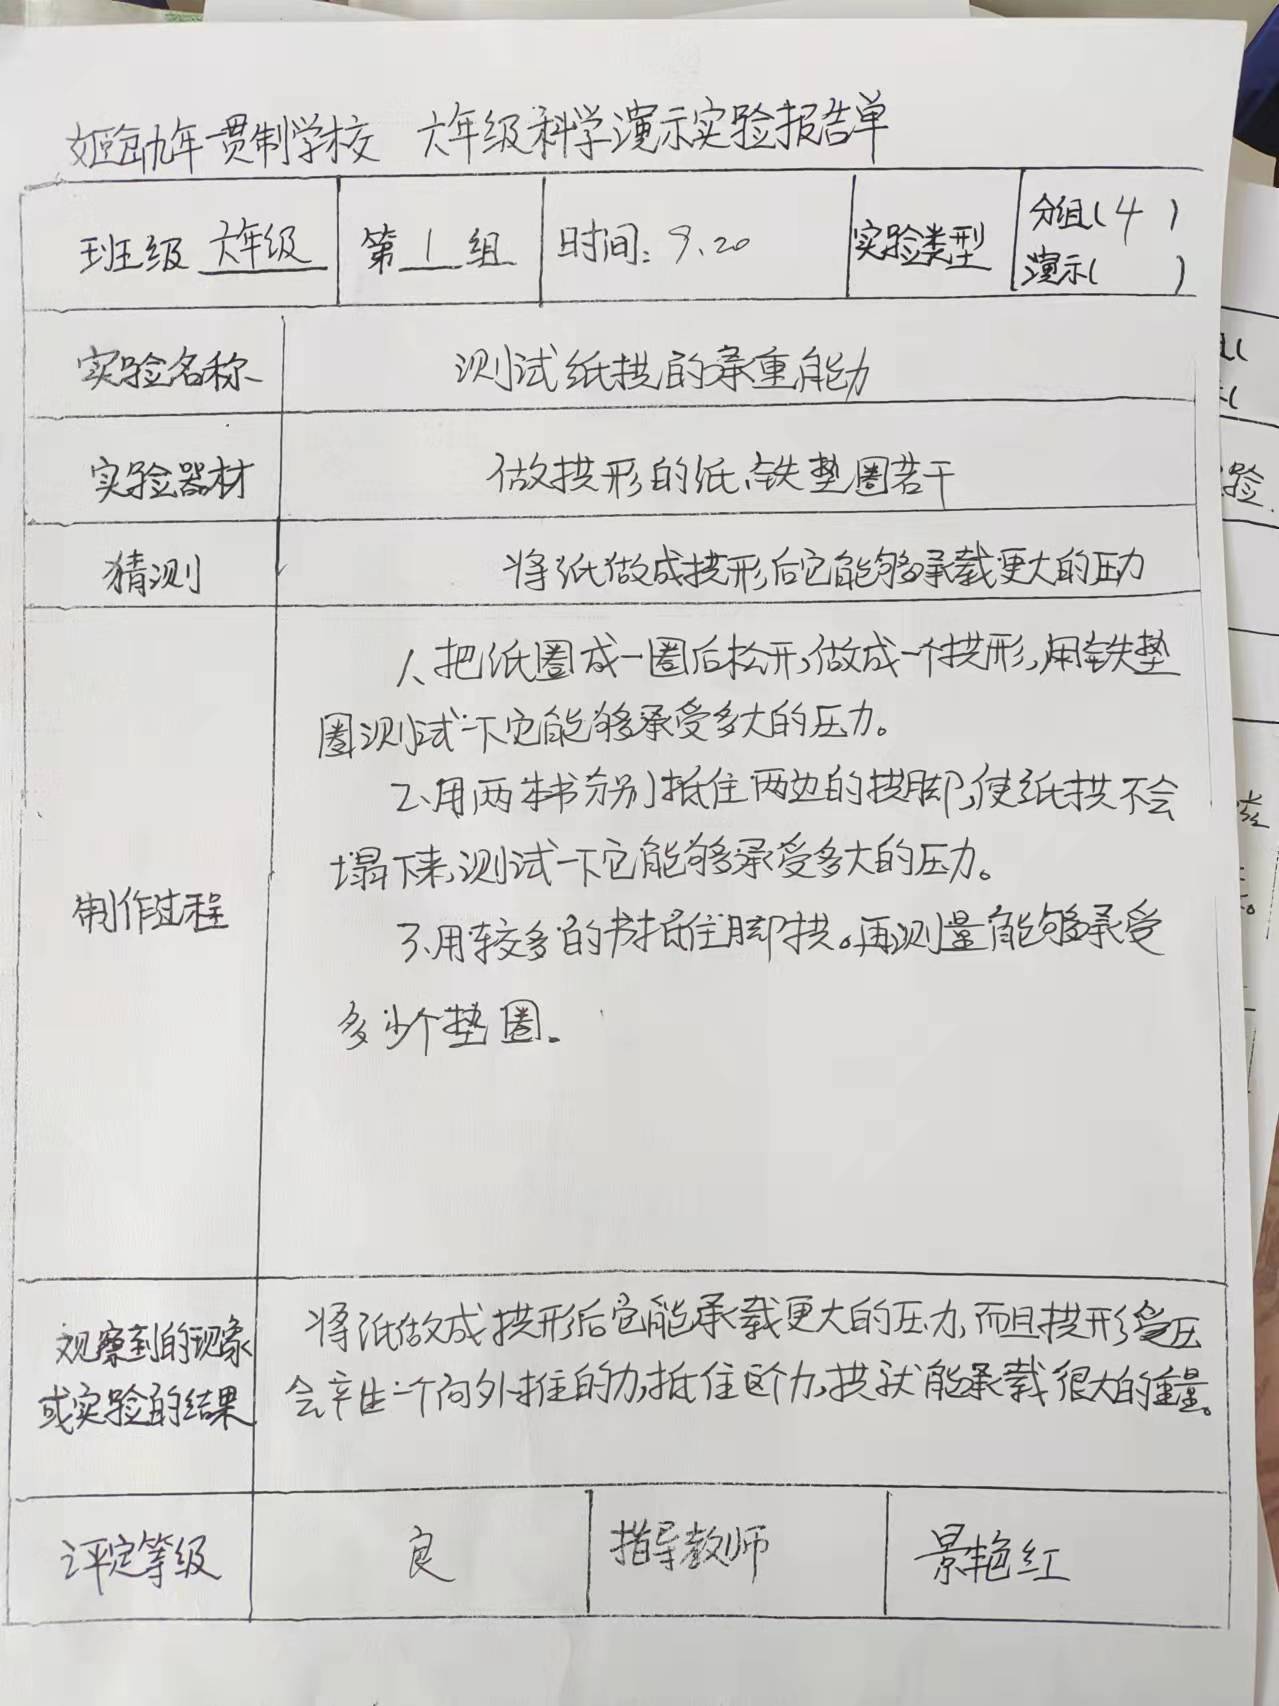 姬家九年一贯制学校 六年级科学演示实验报告单
班级 六年级 第 1 组 时间：9.20 实验类型 分组（4 ）
演示（ ）
实验名称 测试纸拱的承重能力
实验器材 做拱形的纸、铁垫圈若干
猜测 将纸做成拱形后它能够承载更大的压力
制作过程
1、把纸圈成一圈后松开，做成一个拱形，用铁垫
圈测试一下它能够承受多大的压力。
2、用两本书分别抵住两边的拱脚，使纸拱不会
塌下来，测试一下它能够承受多大的压力。
3、用较多的书抵住脚拱。再测量能够承受
多少个垫圈。
观察到的现象
或实验的结果
将纸做成拱形后它能承载更大的压力，而且拱形受压
会产生一个向外推的力，抵住这个力，拱状能承载很大的重量。
评定等级 良 指导教师 景艳红